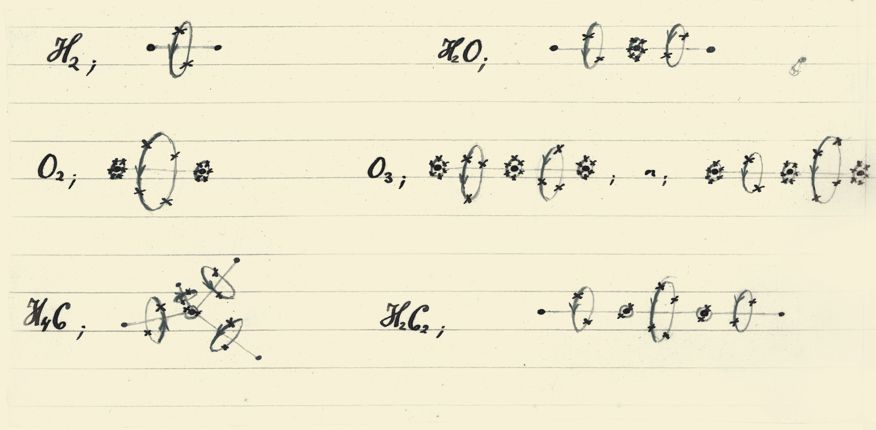 H₂; H₂O;
O₂; O₃; n;
H₄C; H₂C₂;